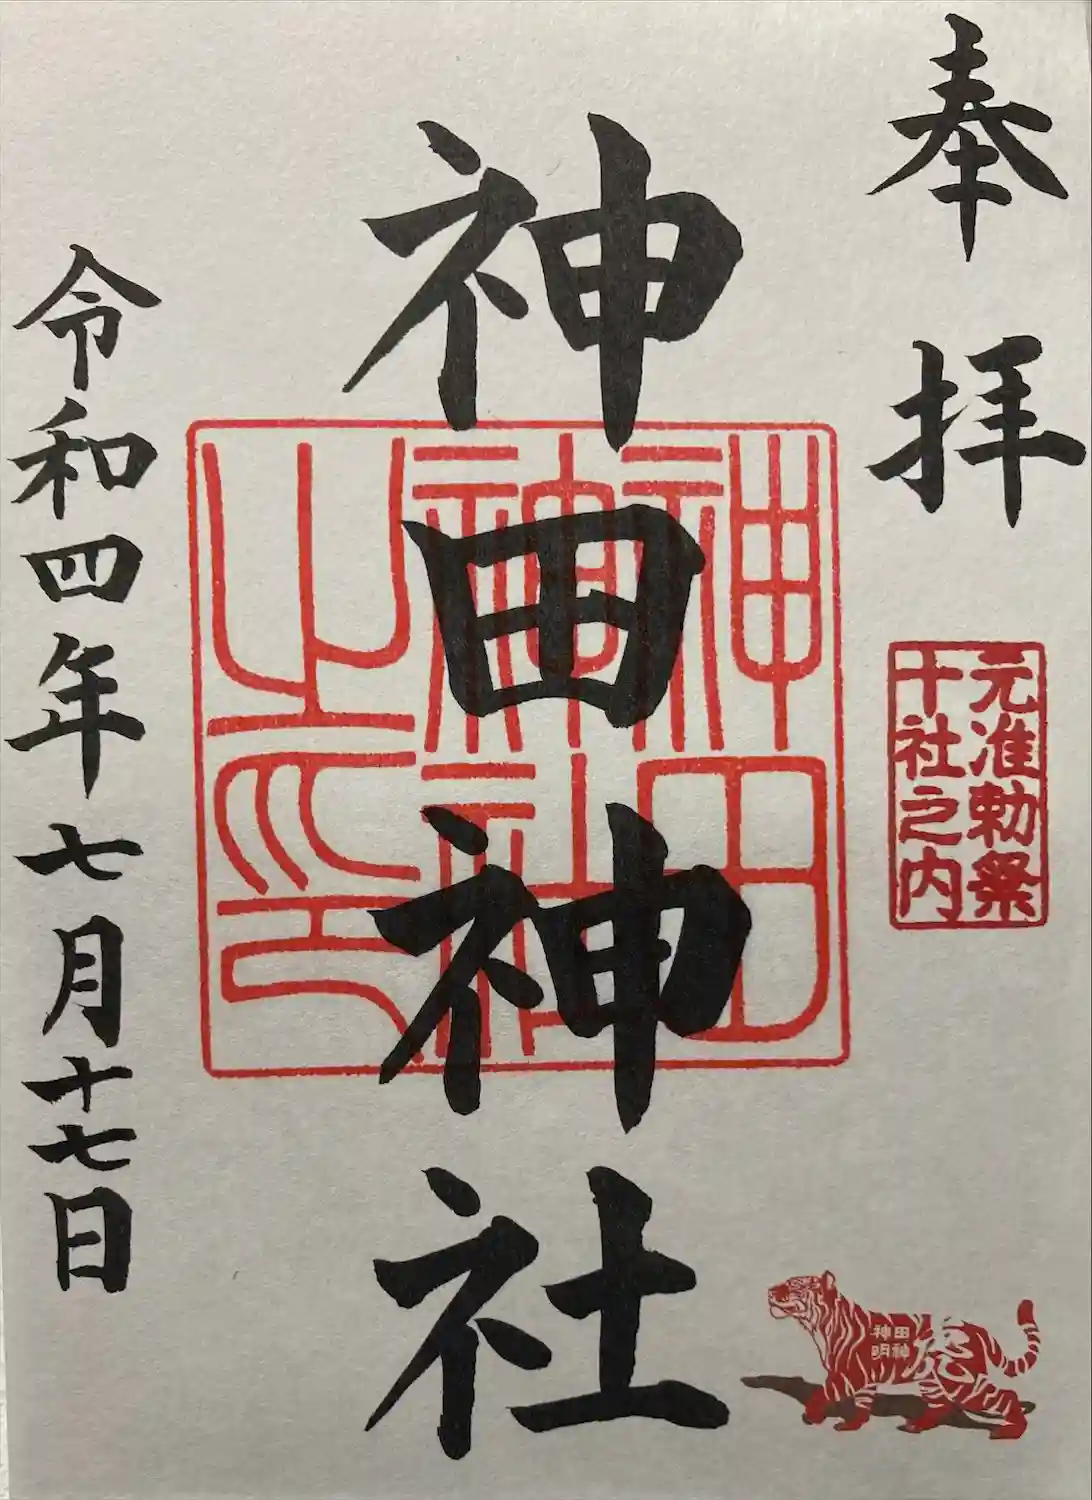 奉拝
元准勅祭
十社之内
神田神社
神田
神社
神社
之印
令和四年七月十七日
神田
明神
虎